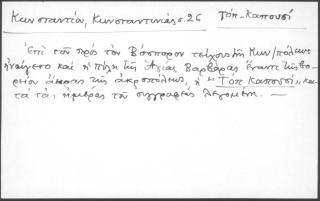 Κωνσταντίου, Κωνσταντινιάς σ. 26 Τόπ-Καπουσί
Ἐπὶ τοῦ πρὸς τὸν Βόσπορον τείχους τῆς Κων/πόλεως
ἠνοίγετο καὶ ἡ πύλη τῆς Ἁγίας Βαρβάρας ἔναντι τῆς βο-
ρείου ἄκρας τῆς ἀκροπόλεως, ἡ "Τόπ Καπουσί" κα-
τὰ τὰς ἡμέρας τοῦ συγγραφέως λεγομένη. —